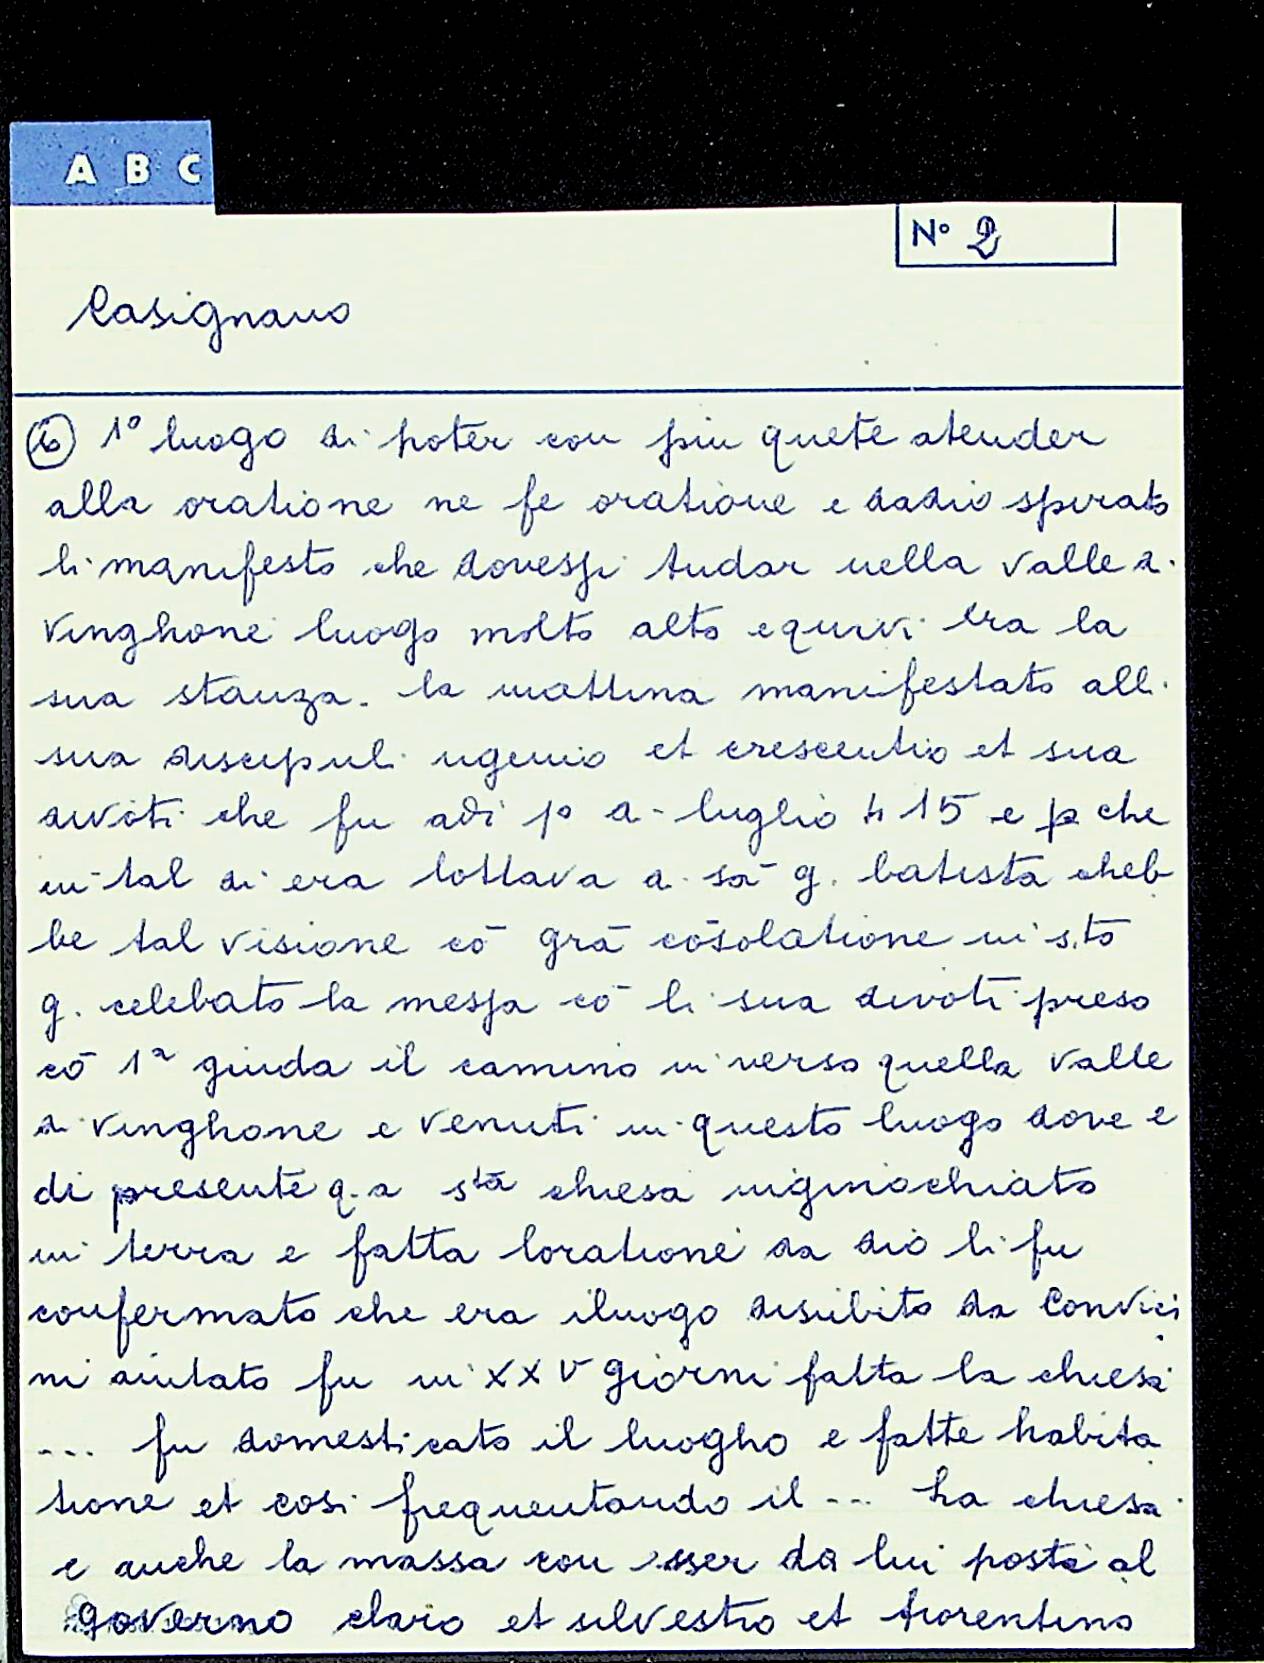 A B C
N° 2
Casignano
1° luogo di poter con piu quete atender
alla oratione ne fe oratione e dadio spirato
li manifesto che dovessi andar nella valle di
vinghone luogo molto alto e quivi era la
sua stanza. la mattina manifestato alli
sua discipuli ugenio et crescentio et sua
divoti che fu adi po di luglio 415 e p che
in tal di era lottava di sā g. batista cheb
be tal visione cō grā cōsolatione in s.to
g. celebato la messa cō li sua divoti preso
cō 1a giuda il camino in verso quella valle
di vinghone e venuti in questo luogo dove e
di presente q.a sta chiesa inginochiato
in terra e fatta loratione da dio li fu
confermato che era iluogo disubito da Convici
ni aiutato fu in XXV giorni fatta la chiesa
... fu domesticato il luogho e fatte habita
tione et cosi frequentando il ... ha chiesa
e anche la massa con esser da lui posto al
governo claro et silvestro et fiorentino